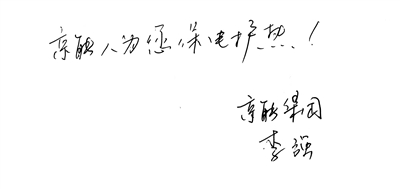 京能人为您保电护热！
京能集团
李强